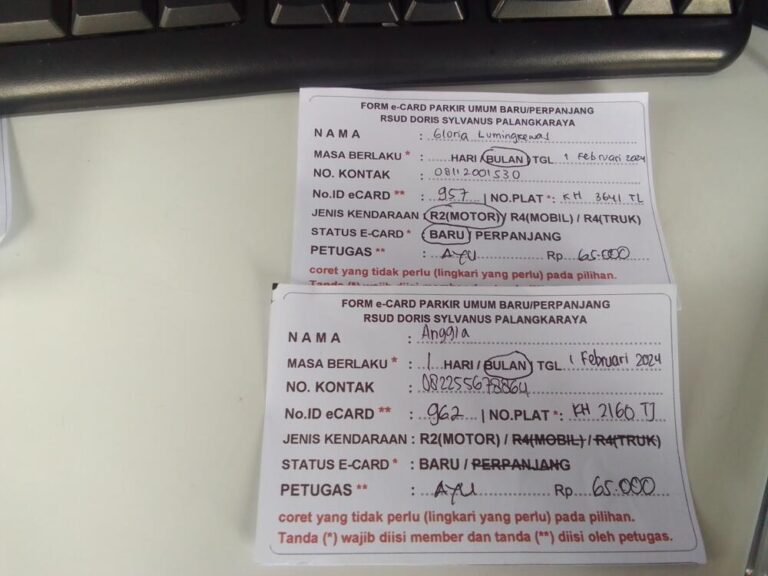 FORM e-CARD PARKIR UMUM BARU/PERPANJANG
RSUD DORIS SYLVANUS PALANGKARAYA
NAMA : Gloria Lumingkewas
MASA BERLAKU * : ...... HARI / BULAN TGL 1 Februari 2024
NO. KONTAK : 08112001530
No.ID eCARD ** : 957 | NO.PLAT *: KH 3641 TL
JENIS KENDARAAN : R2(MOTOR) / R4(MOBIL) / R4(TRUK)
STATUS E-CARD * : BARU / PERPANJANG
PETUGAS ** : AYU Rp 65.000
coret yang tidak perlu (lingkari yang perlu) pada pilihan.
Tanda (*) wajib diisi member dan
FORM e-CARD PARKIR UMUM BARU/PERPANJANG
RSUD DORIS SYLVANUS PALANGKARAYA
NAMA : Anggia
MASA BERLAKU * : 1 HARI / BULAN TGL 1 Februari 2024
NO. KONTAK : 082255678864
No.ID eCARD ** : 962 | NO.PLAT *: KH 2160 TJ
JENIS KENDARAAN : R2(MOTOR) / R4(MOBIL) / R4(TRUK)
STATUS E-CARD * : BARU / PERPANJANG
PETUGAS ** : AYU Rp 65.000
coret yang tidak perlu (lingkari yang perlu) pada pilihan.
Tanda (*) wajib diisi member dan tanda (**) diisi oleh petugas.